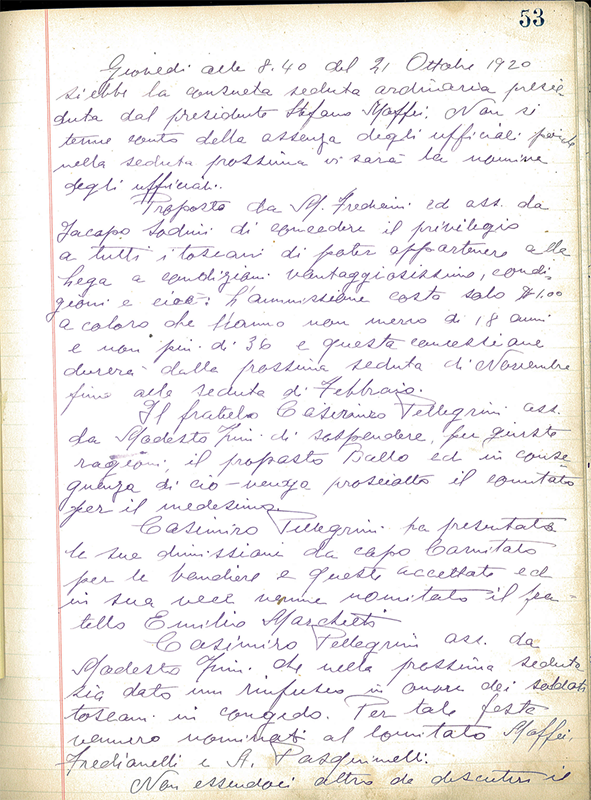 53
Giovedi alle 8.40 del 21 Ottobre 1920
si ebbe la consueta seduta ordinaria presie
duta dal presidente Stefano Maffei. Non si
tenne conto della assenza degli ufficiali poichè
nella seduta prossima vi sarà la nomina
degli ufficiali.
Proposto da M. Frediani ed ass. da
Jacopo Sodini di concedere il privilegio
a tutti i toscani di poter appartenere alla
Lega a condizioni vantaggiosissime, condi
zioni e cioè: L'ammissione costa solo $1.00
a coloro che hanno non meno di 18 anni
e non più di 36 e questa concessione
durerà dalla prossima seduta di Novembre
fino alla seduta di Febbraio.
Il fratello Casimiro Pellegrini ass.
da Modesto di sospendere, per giuste
ragioni, il proposto Ballo ed in conse
guenza di ciò venga prosciolto il comitato
per il medesimo.
Casimiro Pellegrini ha presentato
le sue dimissioni da capo Comitato
per le bandiere e queste accettate ed
in sua vece venne nomitato il fra-
tello Emilio Marchetti
Casimiro Pellegrini ass. da
Modesto che nella prossima seduta
sia dato un rinfresco in onore dei soldati
toscani in congedo. Per tale festa
vennero nominati al comitato Maffei,
Fredianelli e A. Pasquinelli.
Non essendoci altro da discutere il